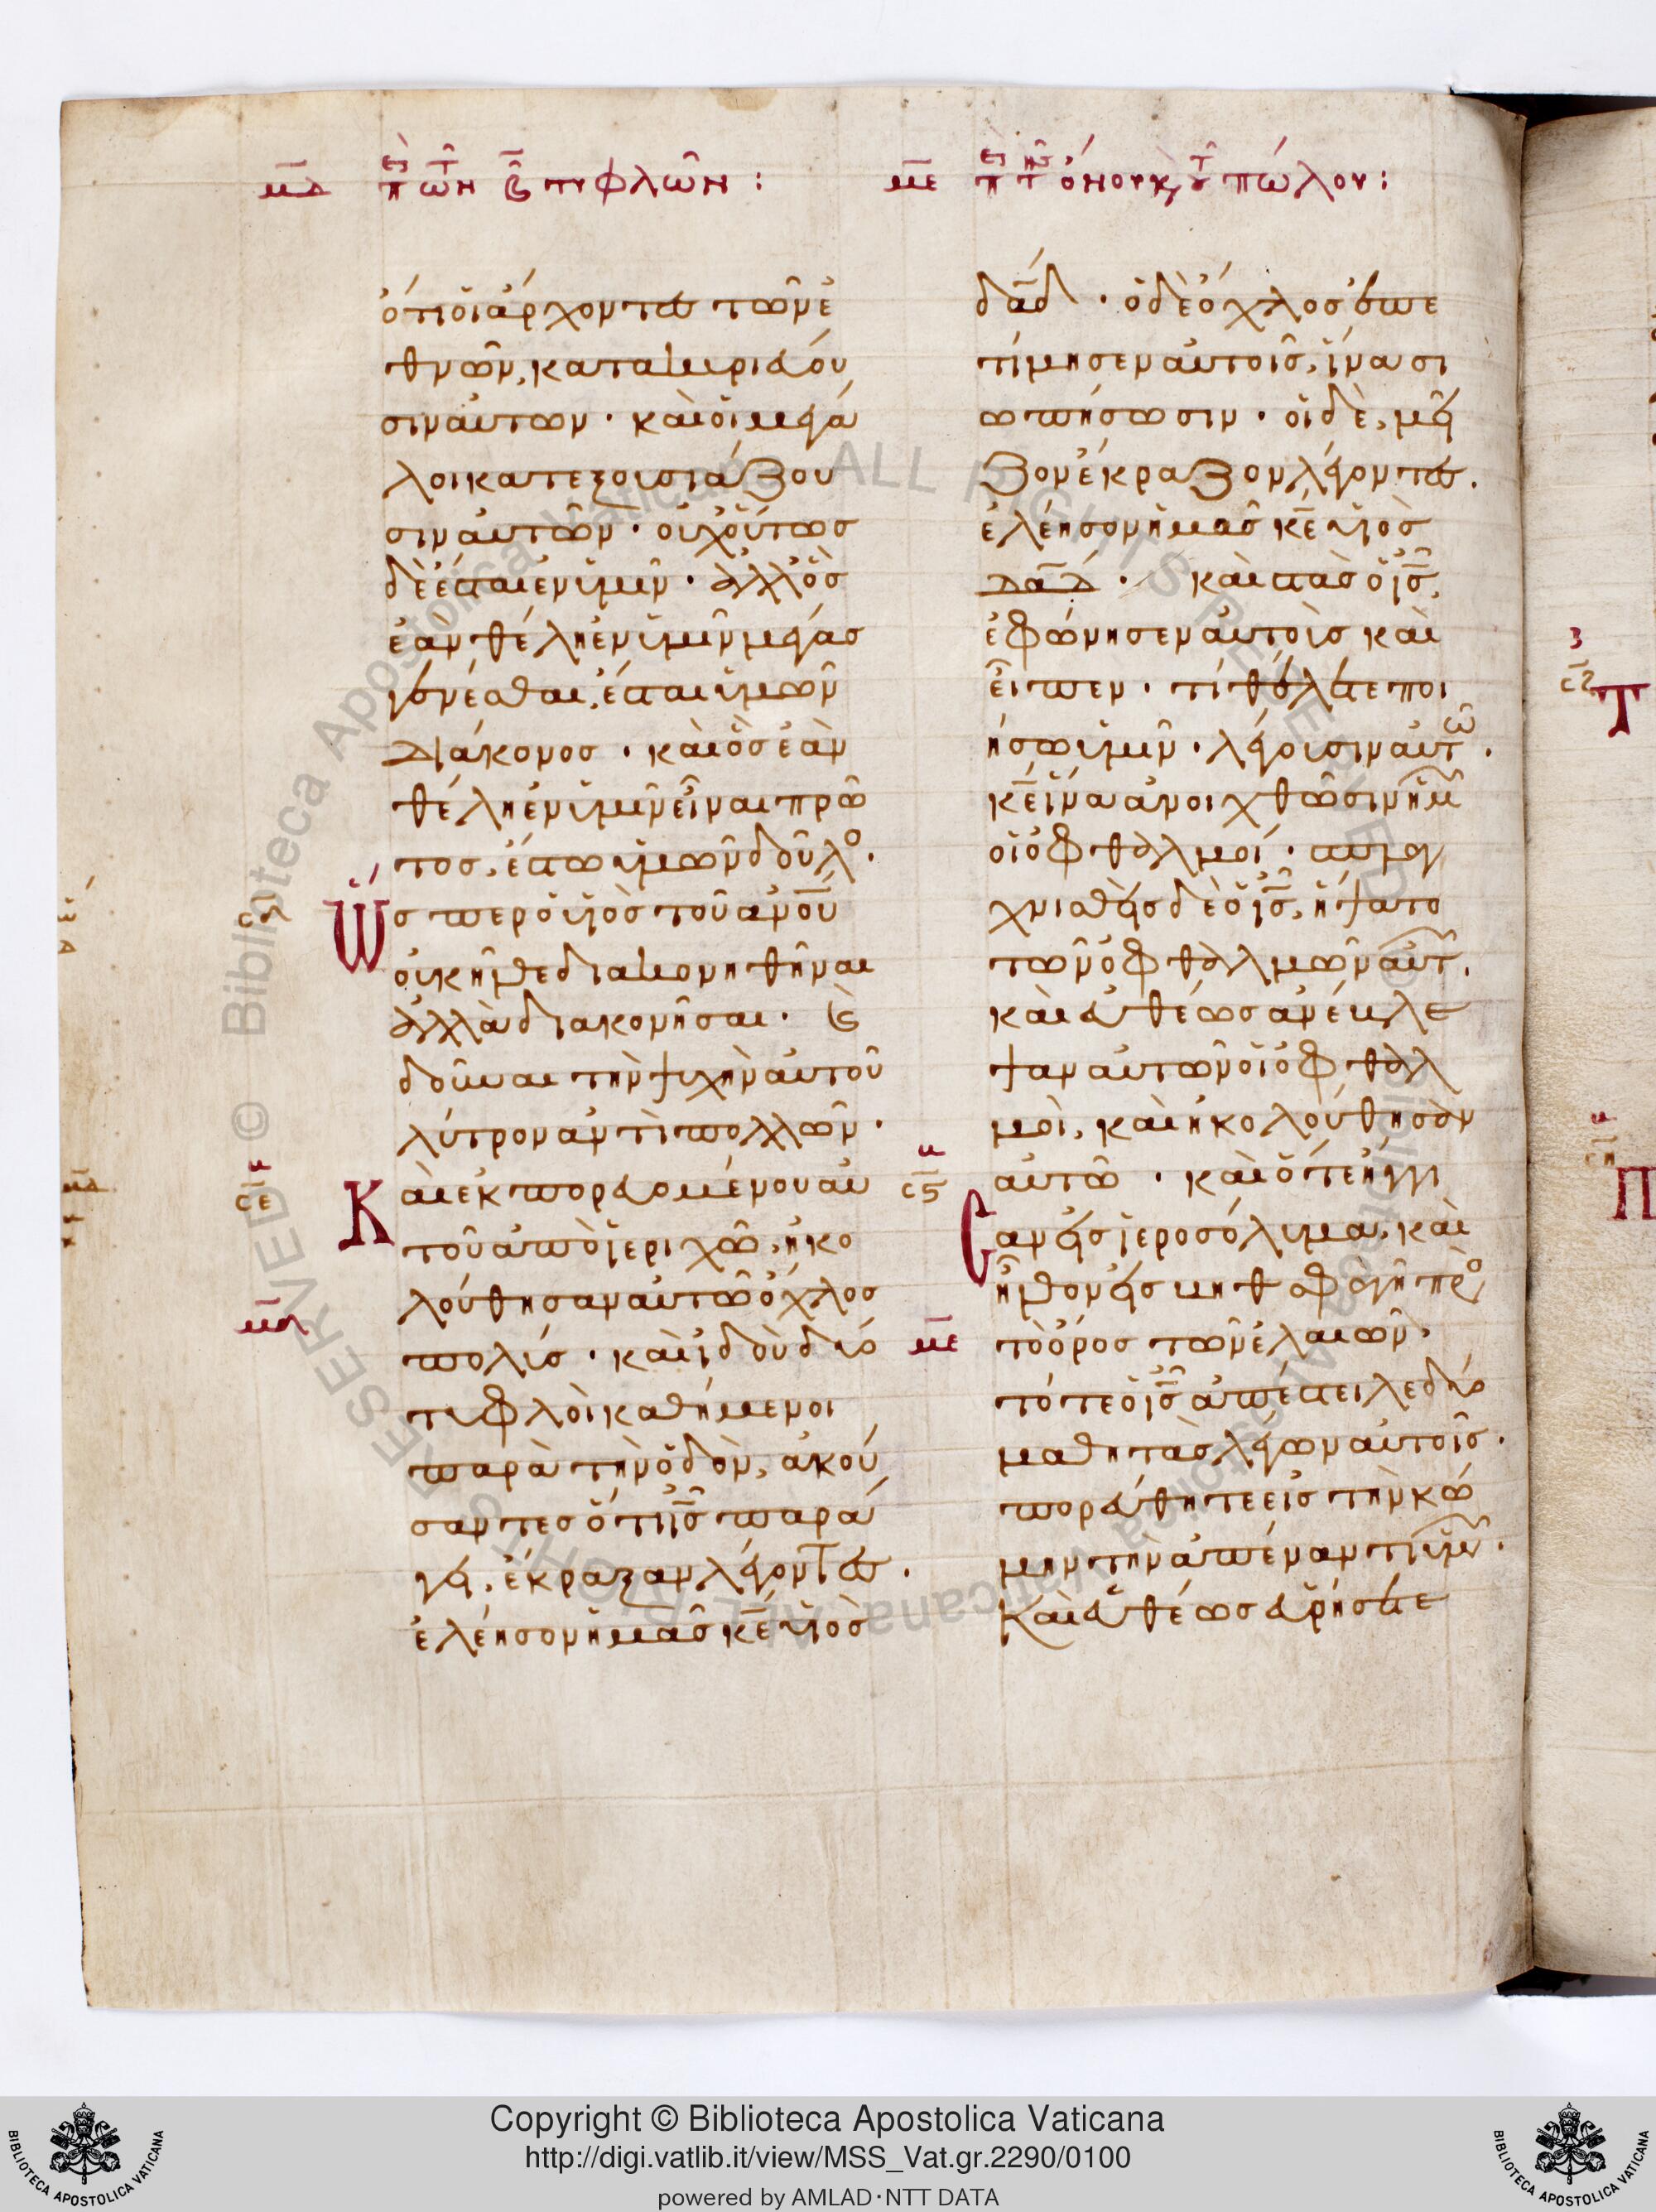 μδ πε τῶν β τυφλῶν :
με πε τῆς ὄνου κ̀ τοῦ πώλου :
ὅτι ὁι ἄρχοντες τῶν ἐ
θνῶν, κατακυριεύου
σιν αυτων · καὶ οἱ μεγά
λοι κατεξουσιάζου
σιν αὐτῶν · οὐχ οὕτως
δὲ ἔσται ἐν ὑμῖν · ἀλλ' ὃς
ἐὰν θέλη ἐν ὑμῖν μέγας
γενέσθαι, ἔσται ὑμῶν
διάκονος · καὶ ὃς ἐὰν
θέλη ἐν ὑμῖν εἶναι πρῶ
τος, ἔστω ὑμῶν δοῦλο ·
σζ Ὥσπερ ὁ υἱὸς τοῦ ἀνου
οὐκ ἦλθε διακονηθῆναι
ἀλλὰ διακονῆσαι · καὶ
δοῦναι τὴν ψυχὴν αὐτοῦ
λύτρον ἀντὶ πολλῶν ·
σε Καὶ ἐκπορευομένου αυ
τοῦ ἀπὸ ἰεριχῶ, ἠκο
λούθησαν αὐτῶ ὄχλος
μδ πολύς · καὶ ἰδοὺ δύο
τυφλοὶ καθήμενοι
παρὰ τὴν ὁδὸν, ἀκού
σαντες ὅτι ις παρά
γει, ἔκραξαν λέγοντες ·
ἐλέησον ἡμᾶς κε υἱὸς
δαδ · ὁ δὲ ὄχλος ἐπε
τίμησεν αὐτοῖς, ἵνα σι
ωπήσωσιν · οἱ δὲ, μεῖ
ζον ἔκραζον λέγοντες ·
ἐλέησον ἡμᾶς κε υἱὸς
δαδ · καὶ στὰς ὁ ις,
ἐφώνησεν αὐτοὺς καὶ
εἶπεν · τί θέλετε ποι
ήσω ὑμῖν · λέγουσιν αὐτῶ ·
κε ἵνα ἀνοιχθῶσιν ἡμ
οἱ ὀφθαλμοί · σπλαγ
χνισθεὶς δὲ ὁ ις, ἥψατο
τῶν ὀφθαλμῶν αὐτ,
καὶ εὐθέως ἀνέβλε
ψαν αὐτῶν οἱ ὀφθαλ
μοὶ, καὶ ἠκολούθησαν
σς αὐτῶ · καὶ ὅτε ἤγγι
σαν εἰς ἱεροσόλυμα, καὶ
ἦλθον εἰς βηθσφαγῆ προ
με τὸ ὄρος τῶν ἐλαιῶν ·
τότε ὁ ις ἀπέστειλε δύο
μαθητὰς λέγων αὐτοῖς ·
πορεύθητε εἰς τὴν κώ
μην τὴν ἀπέναντι ὑμ ·
καὶ εὐθέως εὑρήσετε